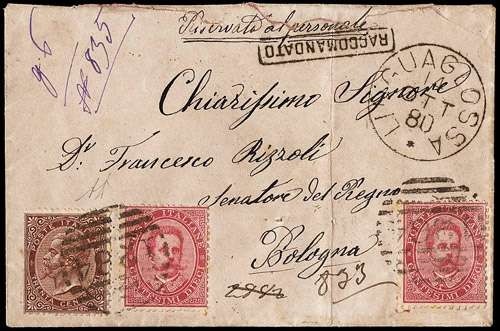 Riservata al personale
g 6
# 835
RACCOMANDATO
LINGUAGLOSSA
14
OTT
80
Chiarissimo Signore
Dr. Francesco Rizzoli
Senatore del Regno
Bologna
833
POSTE ITALIANE
TRENTA CENT
POSTE ITALIANE
CENTESIMI DIECI
POSTE ITALIANE
CENTESIMI DIECI